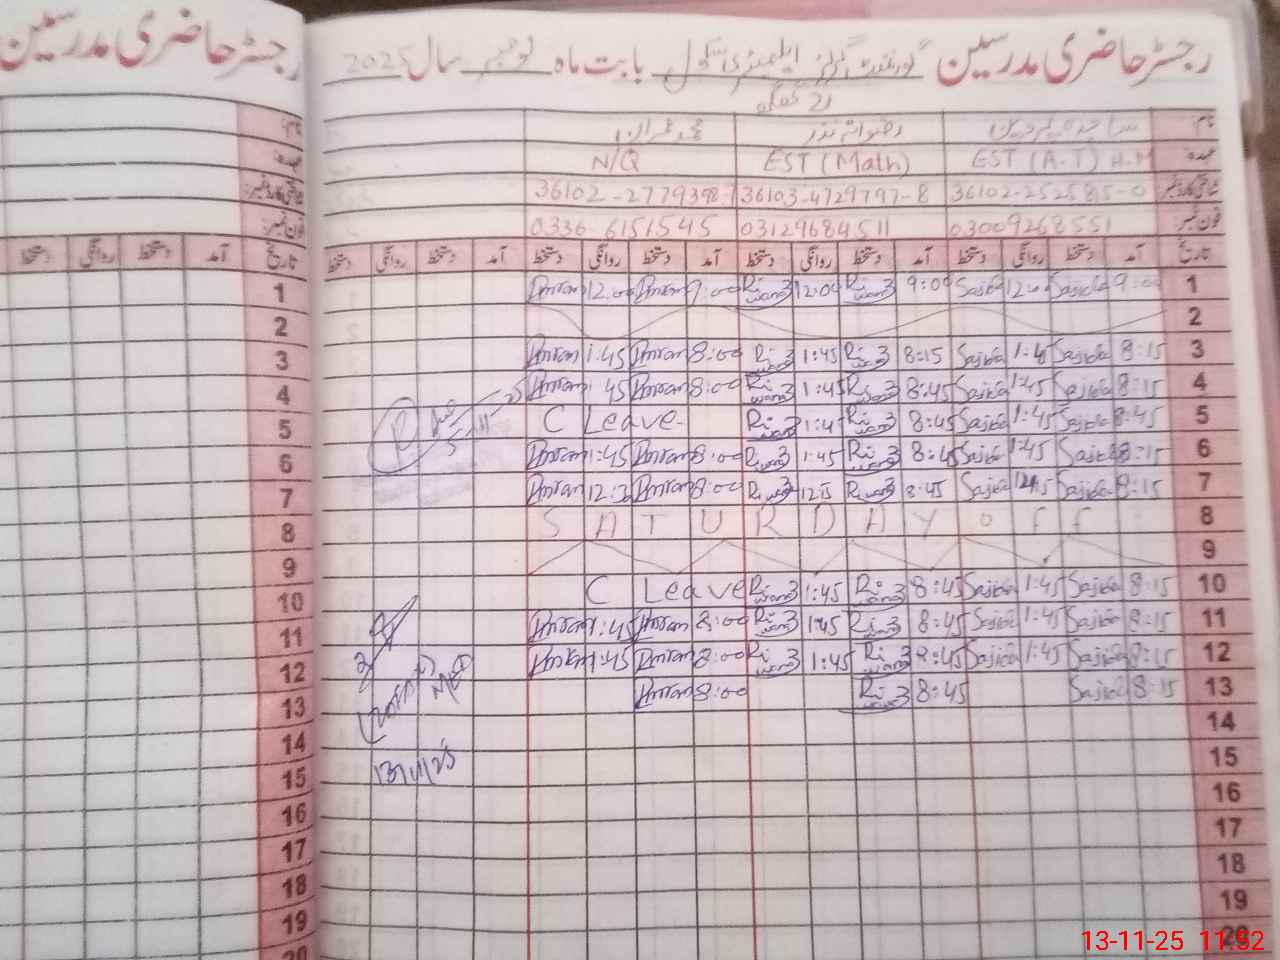 رجسٹر حاضری مدرسین
رجسٹر حاضری مدرسین گورنمنٹ گرلز ایلیمنٹری سکول بابت ماہ نومبر سال 2025
نام: ساجدہ پروین رضوانہ نذر محمد عمران
عہدہ: EST (A.T) H.M EST (Math) N/Q
شناختی کارڈ نمبر: 36102-252585-0 36103-4729797-8 36102-2779398-
فون نمبر: 03009268551 03129684511 0336-6151545
تاریخ آمد دستخط روانگی دستخط آمد دستخط روانگی دستخط آمد دستخط روانگی دستخط آمد دستخط روانگی دستخط
1 9:00 Sajida 12:00 Sajida 9:00 Riwan 12:00 Riwan 9:00 Imran 12:00 Imran
2
3 8:15 Sajida 1:45 Sajida 8:15 Riwan 1:45 Riwan 8:00 Imran 1:45 Imran
4 8:15 Sajida 1:45 Sajida 8:45 Riwan 1:45 Riwan 8:00 Imran 1:45 Imran
5 8:45 Sajida 1:45 Sajida 8:45 Riwan 1:45 Riwan C Leave
6 8:15 Sajida 1:45 Sajida 8:45 Riwan 1:45 Riwan 8:00 Imran 1:45 Imran
7 8:15 Sajida 12:15 Sajida 8:45 Riwan 12:15 Riwan 8:00 Imran 12:3 Imran
8 SATURDAY off
9
10 8:15 Sajida 1:45 Sajida 8:45 Riwan 1:45 Riwan C Leave
11 8:15 Sajida 1:45 Sajida 8:45 Riwan 1:45 Riwan 8:00 Imran 1:45 Imran
12 8:15 Sajida 1:45 Sajida 8:45 Riwan 1:45 Riwan 8:00 Imran 1:45 Imran
13 8:15 Sajida 8:45 Riwan 8:00 Imran
13/11/25
14
15
16
17
18
19
20
نام:
عہدہ:
شناختی کارڈ نمبر:
فون نمبر:
تاریخ آمد دستخط روانگی دستخط
1
2
3
4
5
6
7
8
9
10
11
12
13
14
15
16
17
18
19
20
13-11-25 11:52